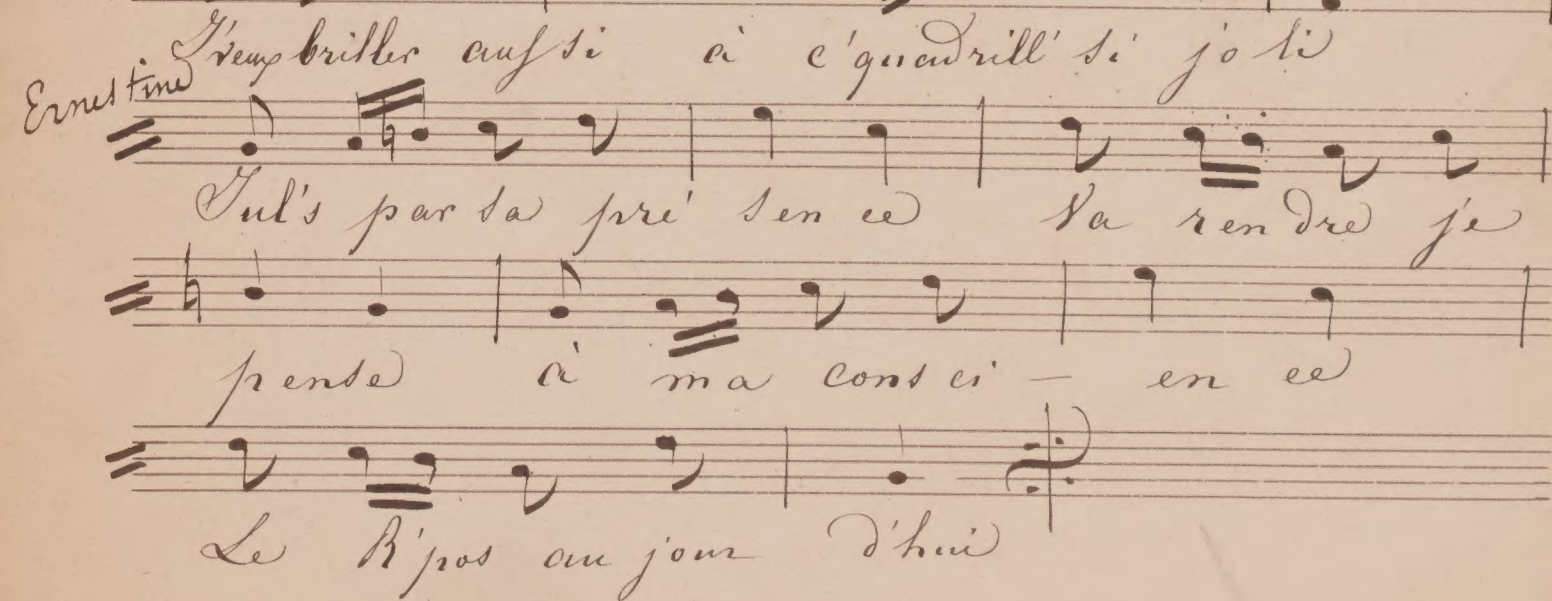 J'veux briller aussi à c'quadrill' si joli
Ernestine
Jul's par sa pré sen ce Va ren dre je
pense à ma cons ci – en ce
Le R'pos au jour d'hui